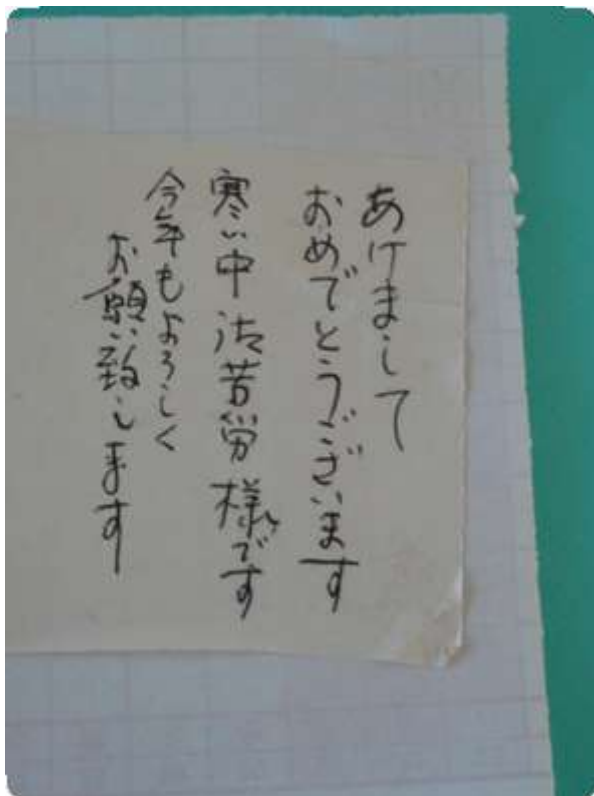 あけまして
おめでとうございます
寒い中御苦労様です
今年もよろしく
お願い致します